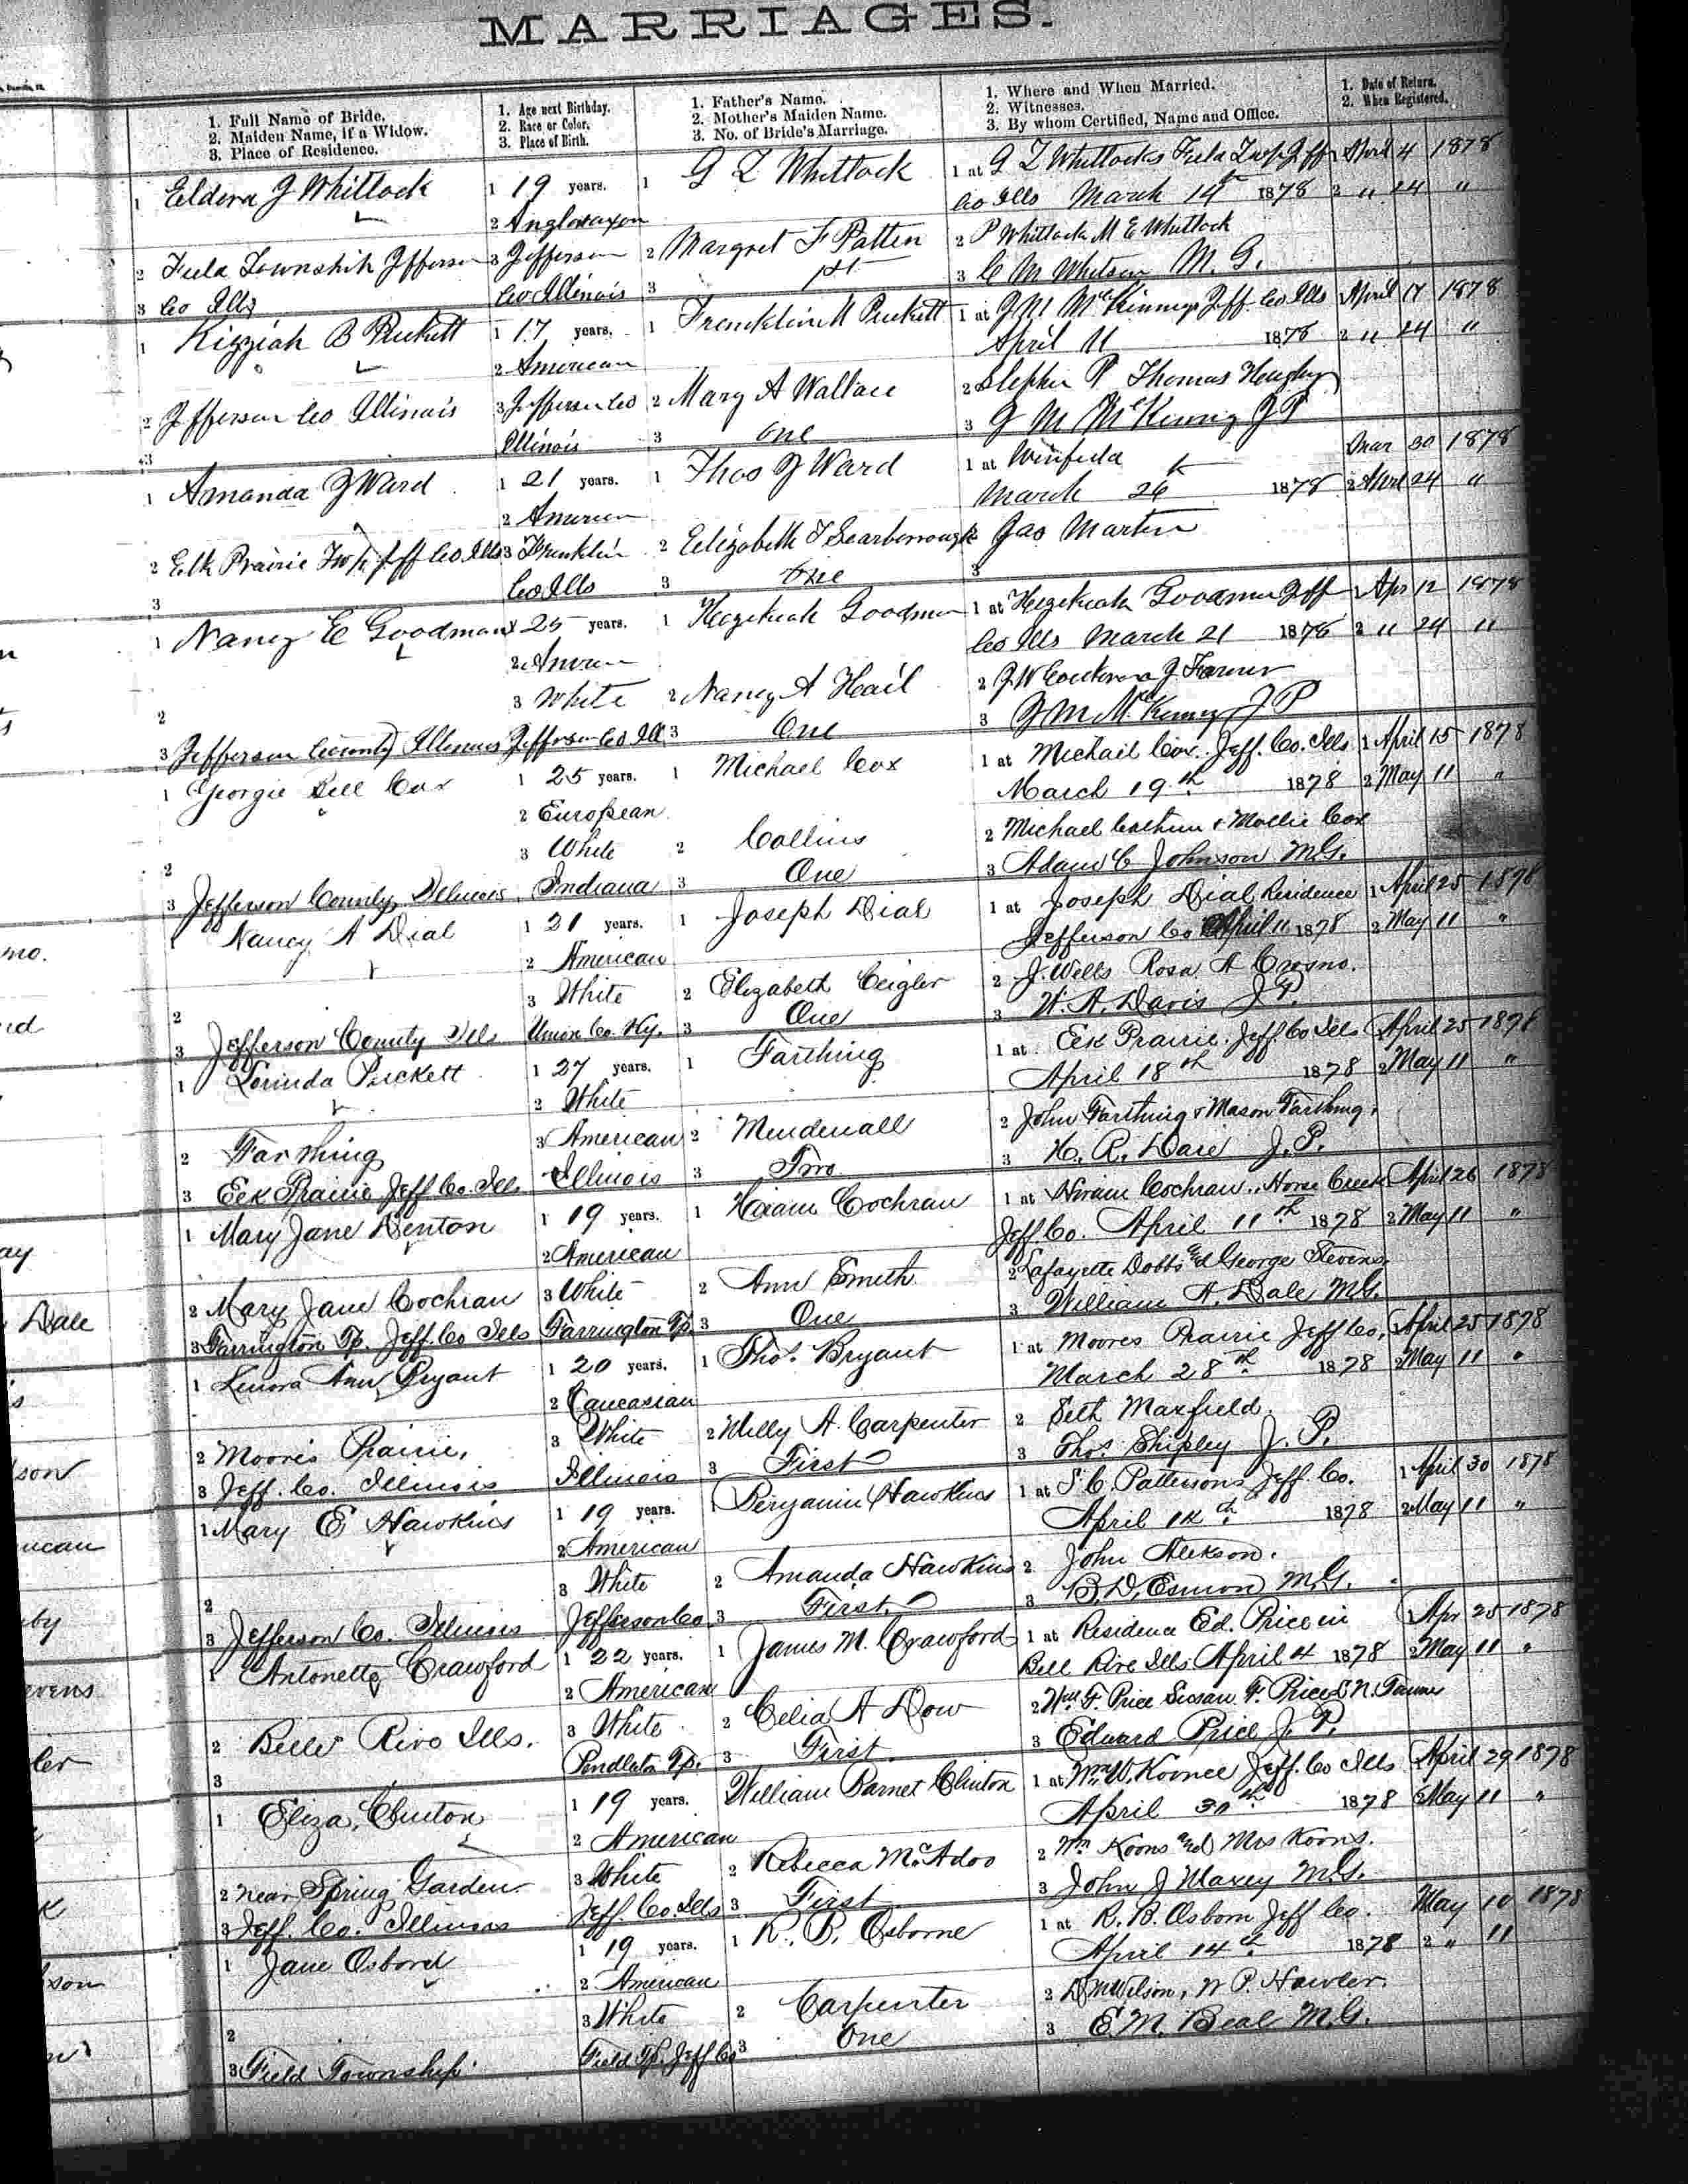 MARRIAGES.
1. Full Name of Bride.
2. Maiden Name, if a Widow.
3. Place of Residence.
1. Age next Birthday.
2. Race or Color.
3. Place of Birth.
1. Father's Name.
2. Mother's Maiden Name.
3. No. of Bride's Marriage.
1. Where and When Married.
2. Witnesses.
3. By whom Certified, Name and Office.
1. Date of Return.
2. When Registered.
1 Eldora J Whitlock 1 19 years. 1 G L Whitlock 1 at G L Whitlocks Field Twp Jeff 1 April 4 1878
Co Ills March 14th 1878 2 " 24 "
2 Anglosaxon
2 Field Township Jefferson 3 Jefferson 2 Margret F Patten 2 P Whitlock M E Whitlock
3 Co Ills Co Illinois 3 1st 3 C M Whitson M. G.
1 Kizziah B Puckett 1 17 years. 1 Franklin M Puckett 1 at J M McKinneys Jeff. Co Ills April 17 1878
2 American April 11 1878 2 " 24 "
2 Jefferson Co Illinois 3 Jefferson Co 2 Mary A Wallace 2 Stephen P Thomas
3 Illinois 3 One 3 J M McKinney J P
1 Amanda J Ward 1 21 years. 1 Thos J Ward 1 at Winfield Mar 30 1878
2 American March 26th 1878 2 April 24 "
2 Elk Prairie Twp Jeff Co Ills 3 Franklin 2 Elizabeth T Scarborough 2 Jas Martin
3 Co Ills 3 One 3
1 Nancy E Goodman 1 25 years. 1 Hezekiah Goodman 1 at Hezekiah Goodman Jeff 1 Apr 12 1878
2 American Co Ills March 21 1878 2 " 24 "
2 3 White 2 Nancy A Hail 2 J Farmer
3 Jefferson County Illinois Jefferson Co Ill 3 One 3 J M McKinney J P
1 Georgie Bell Cox 1 25 years. 1 Michael Cox 1 at Michail Cox. Jeff. Co. Ills 1 April 15 1878
2 European March 19th 1878 2 May 11 "
2 3 White 2 Collins 2 Michael & Mollie Cox
3 Jefferson County, Illinois. Indiana 3 One 3 Adam C Johnson M.G.
1 Nancy A Dial 1 21 years. 1 Joseph Dial 1 at Joseph Dial Residence 1 April 25 1878
2 American Jefferson Co April 11 1878 2 May 11 "
2 3 White 2 Elizabeth Ceigler 2 J. Wells Rosa A Cresno.
3 Jefferson County Ills Union Co. Ky. 3 One 3 W. A. Davis J P.
1 Lorinda Puckett 1 27 years. 1 Farthing 1 at Elk Prairie. Jeff. Co Ills April 25 1878
2 White April 18th 1878 2 May 11 "
2 Farthing 3 American 2 Mendenall 2 John Farthing & Mason Farthing.
3 Elk Prairie Jeff Co. Ills Illinois 3 Two 3 H. R. Dare J. P.
1 Mary Jane Denton 1 19 years. 1 Hiram Cochran 1 at Hiram Cochran., Horse Creek April 26 1878
2 American Jeff Co. April 11th 1878 2 May 11 "
2 Mary Jane Cochran 3 White 2 Ann Smith 2 Lafayette Dobbs and George Stevens.
3 Farrington Tp. Jeff. Co Ills Farrington Tp. 3 One 3 William A. Dale M.G.
1 Lenora Ann Bryant 1 20 years. 1 Thos. Bryant 1 at Moores Prairie Jeff Co. April 25 1878
2 Caucasian March 28th 1878 2 May 11 "
2 Moores Prairie. 3 White 2 Milly A. Carpenter 2 Seth Maxfield.
3 Jeff. Co. Illinois Illinois 3 First 3 Thos. Shipley J. P.
1 Mary E Hawkins 1 19 years. 1 Benjamin Hawkins 1 at S. C. Pattersons Jeff. Co. 1 April 30 1878
2 American April 1878 2 May 11 "
2 3 White 2 Amanda Hawkins 2 John
3 Jefferson Co. Illinois Jefferson Co. 3 First. 3 B. D. Esmon M.G.
1 Antonette Crawford 1 22 years. 1 James M. Crawford 1 at Residence Ed. Price in Apr 25 1878
2 American Bell Rive Ills. April 4 1878 2 May 11 "
2 Belle Rive Ills. 3 White 2 Celia A Dow 2 Wm F. Price Susan F. Price
3 Pendleton Tp. 3 First. 3 Edward Price J. P.
1 Eliza, Clinton 1 19 years. William Barnet Clinton 1 at Wm. W. Koonce Jeff. Co Ills April 29 1878
2 American April 30th 1878 2 May 11 "
2 near Spring Garden. 3 White 2 Rebecca McAdoo 2 Wm Koons and Mrs Koons.
3 Jeff. Co. Illinois Jeff. Co. Ills 3 First 3 John J Maxey M.G.
1 Jane Osborn 1 19 years. 1 R. B. Osborne 1 at R. B. Osborn Jeff Co. May 10 1878
2 American April 14th 1878 2 " 11
2 3 White 2 Carpenter 2 Wilson, W P.
3 Field Township. Field Tp. Jeff Co 3 One 3 E. M. Beal M.G.